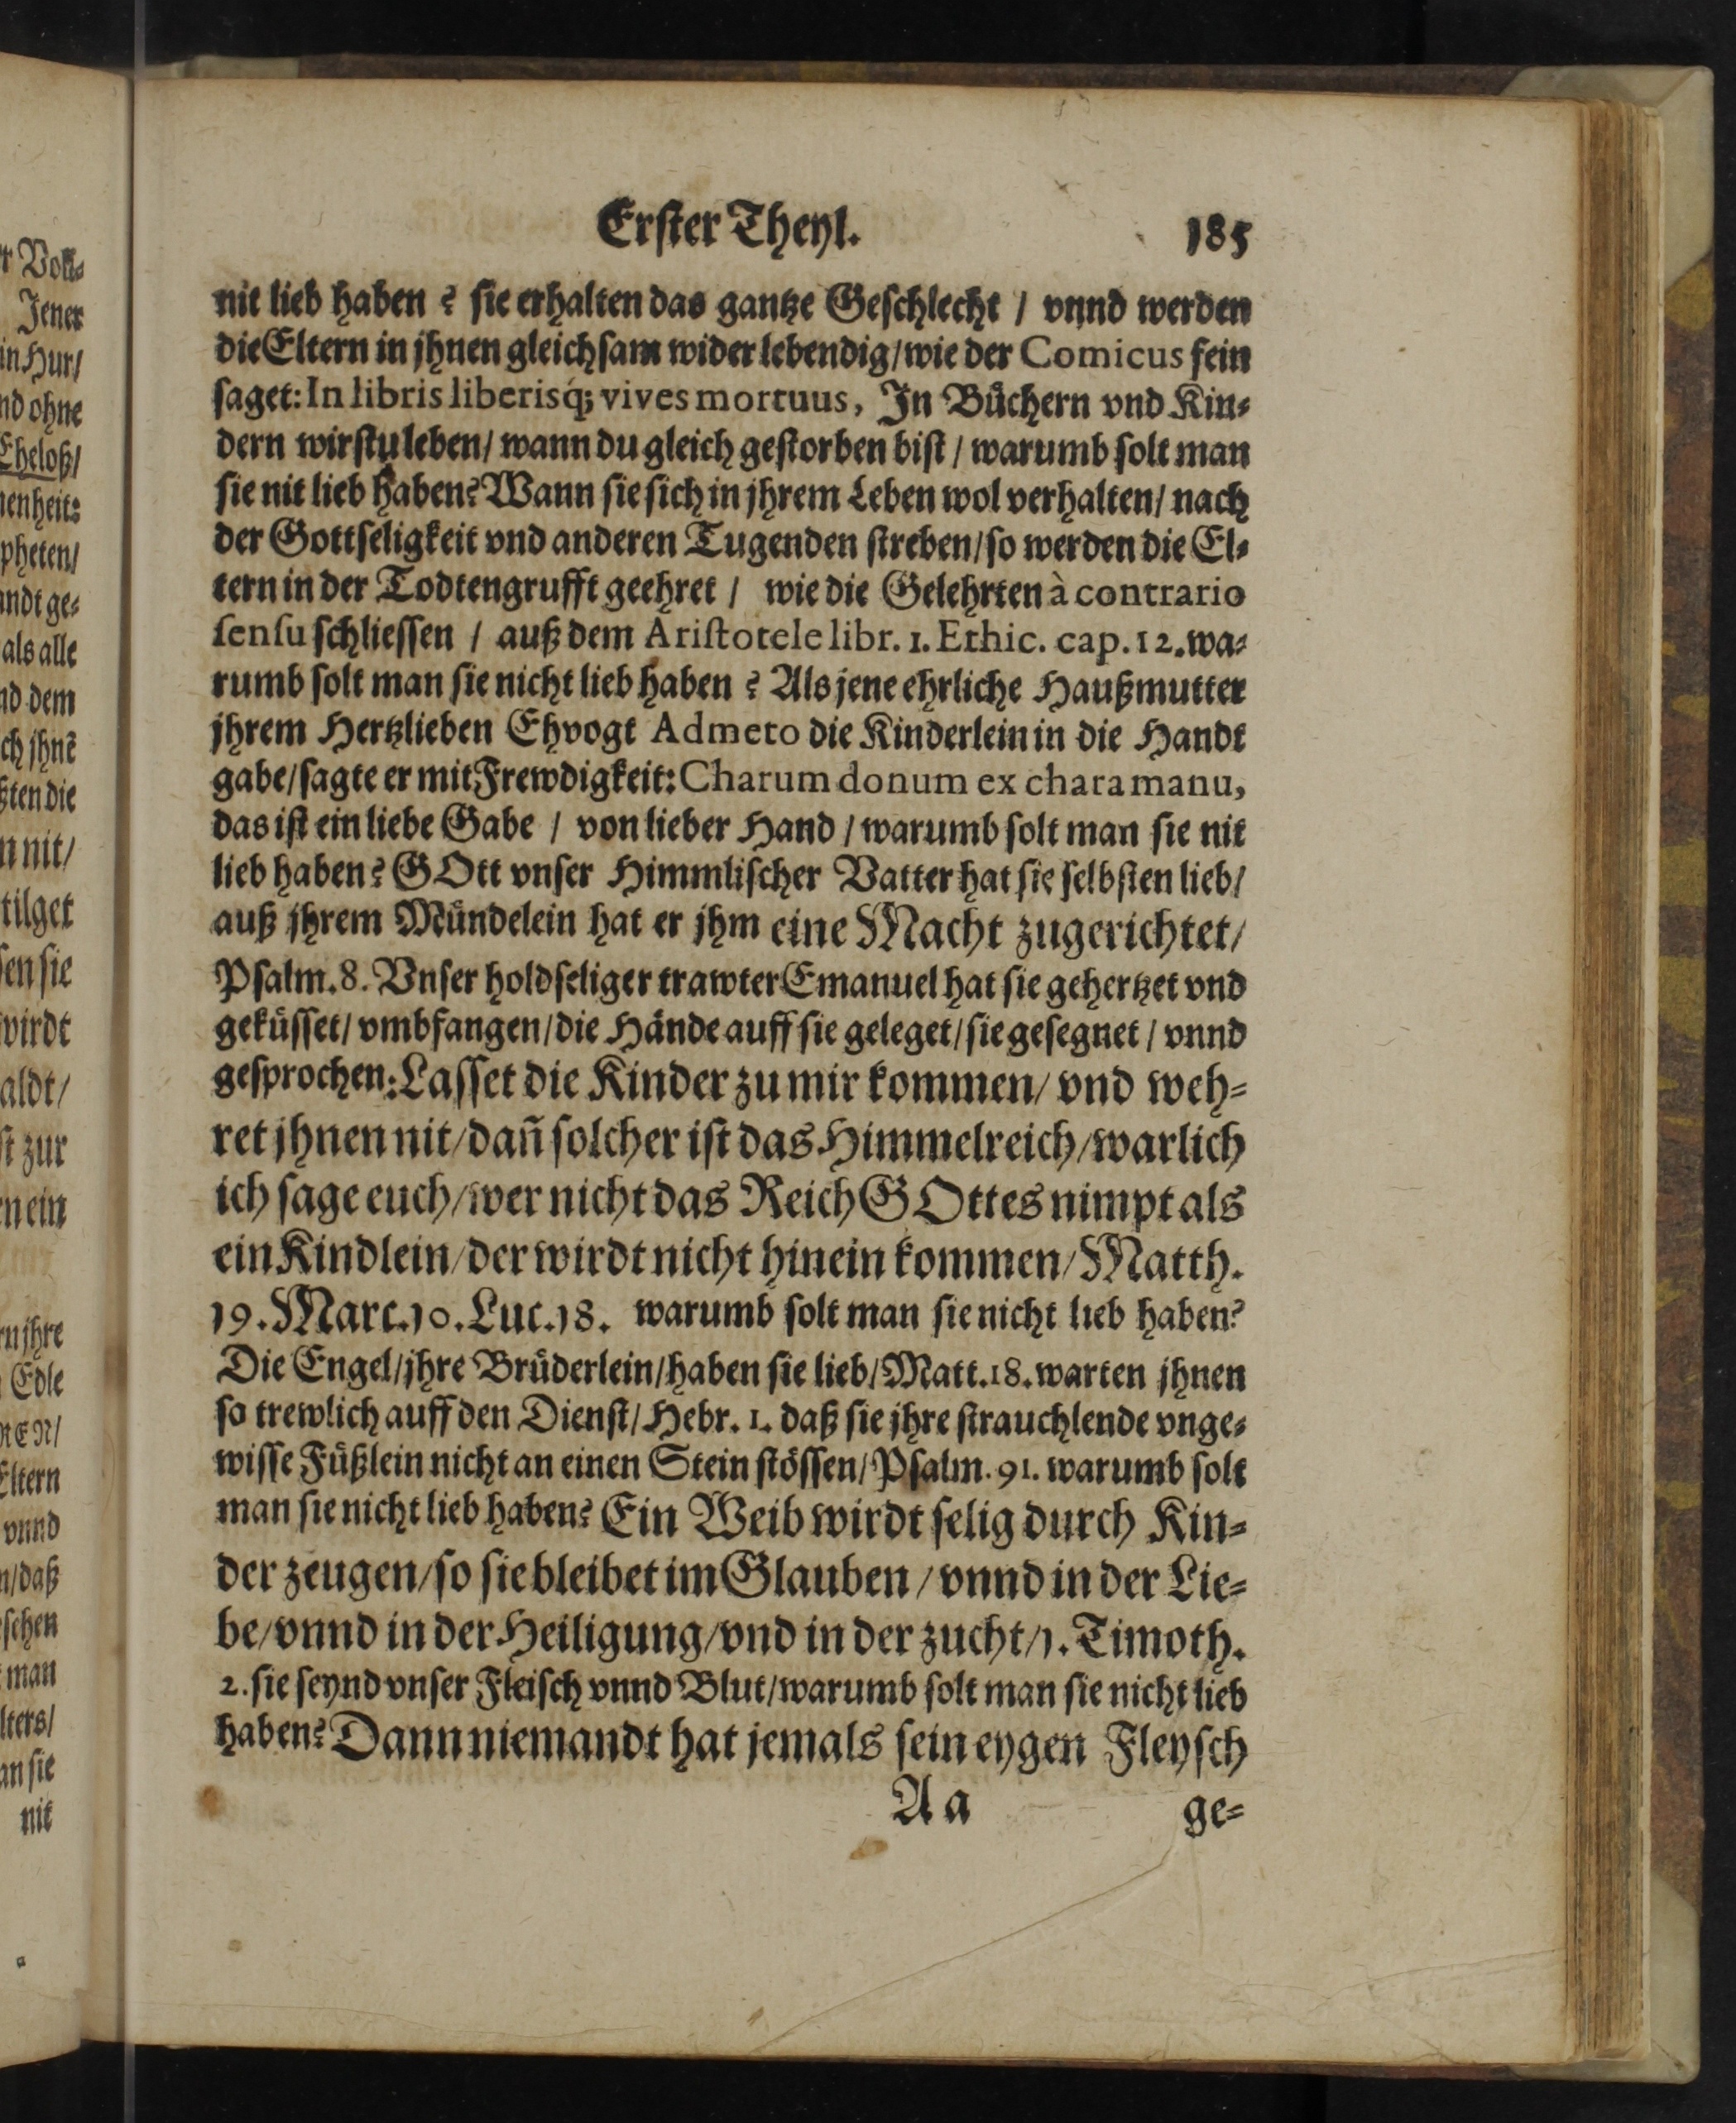 Erster Theyl. 185
nit lieb haben? sie erhalten das gantze Geschlecht / vnnd werden
die Eltern in jhnen gleichsam wider lebendig/wie der Comicus fein
saget: In libris liberisq́; vives mortuus, In Bůchern vnd Kin-
dern wirstu leben/ wann du gleich gestorben bist / warumb solt man
sie nit lieb haben? Wann sie sich in jhrem Leben wol verhalten/ nach
der Gottseligkeit vnd anderen Tugenden streben/so werden die El-
tern in der Todtengrufft geehret / wie die Gelehrten à contrario
sensu schliessen / auß dem Aristotele libr. 1. Ethic. cap. 12. wa-
rumb solt man sie nicht lieb haben? Als jene ehrliche Haußmutter
jhrem Hertzlieben Ehvogt Admeto die Kinderlein in die Handt
gabe/sagte er mit Frewdigkeit: Charum donum ex chara manu,
das ist ein liebe Gabe / von lieber Hand / warumb solt man sie nit
lieb haben? GOtt vnser Himmlischer Vatter hat sie selbsten lieb/
auß jhrem Můndelein hat er jhm eine Macht zugerichtet/
Psalm. 8. Vnser holdseliger trawter Emanuel hat sie gehertzet vnd
gekůsset/ vmbfangen/die Hände auff sie geleget/sie gesegnet / vnnd
gesprochen: Lasset die Kinder zu mir kommen/ vnd weh-
ret jhnen nit/dañ solcher ist das Himmelreich/warlich
ich sage euch/wer nicht das Reich GOttes nimpt als
ein Kindlein/der wirdt nicht hinein kommen/Matth.
19. Marc. 10. Luc. 18. warumb solt man sie nicht lieb haben?
Die Engel/jhre Brůderlein/haben sie lieb/Matt. 18. warten jhnen
so trewlich auff den Dienst/ Hebr. 1. daß sie jhre strauchlende vnge-
wisse Fůßlein nicht an einen Stein stössen/Psalm. 91. warumb solt
man sie nicht lieb haben? Ein Weib wirdt selig durch Kin-
der zeugen/so sie bleibet im Glauben / vnnd in der Lie-
be/vnnd in der Heiligung/vnd in der zucht/1. Timoth.
2. sie seynd vnser Fleisch vnnd Blut/warumb solt man sie nicht lieb
haben? Dann niemandt hat jemals sein eygen Fleysch
Aa ge-